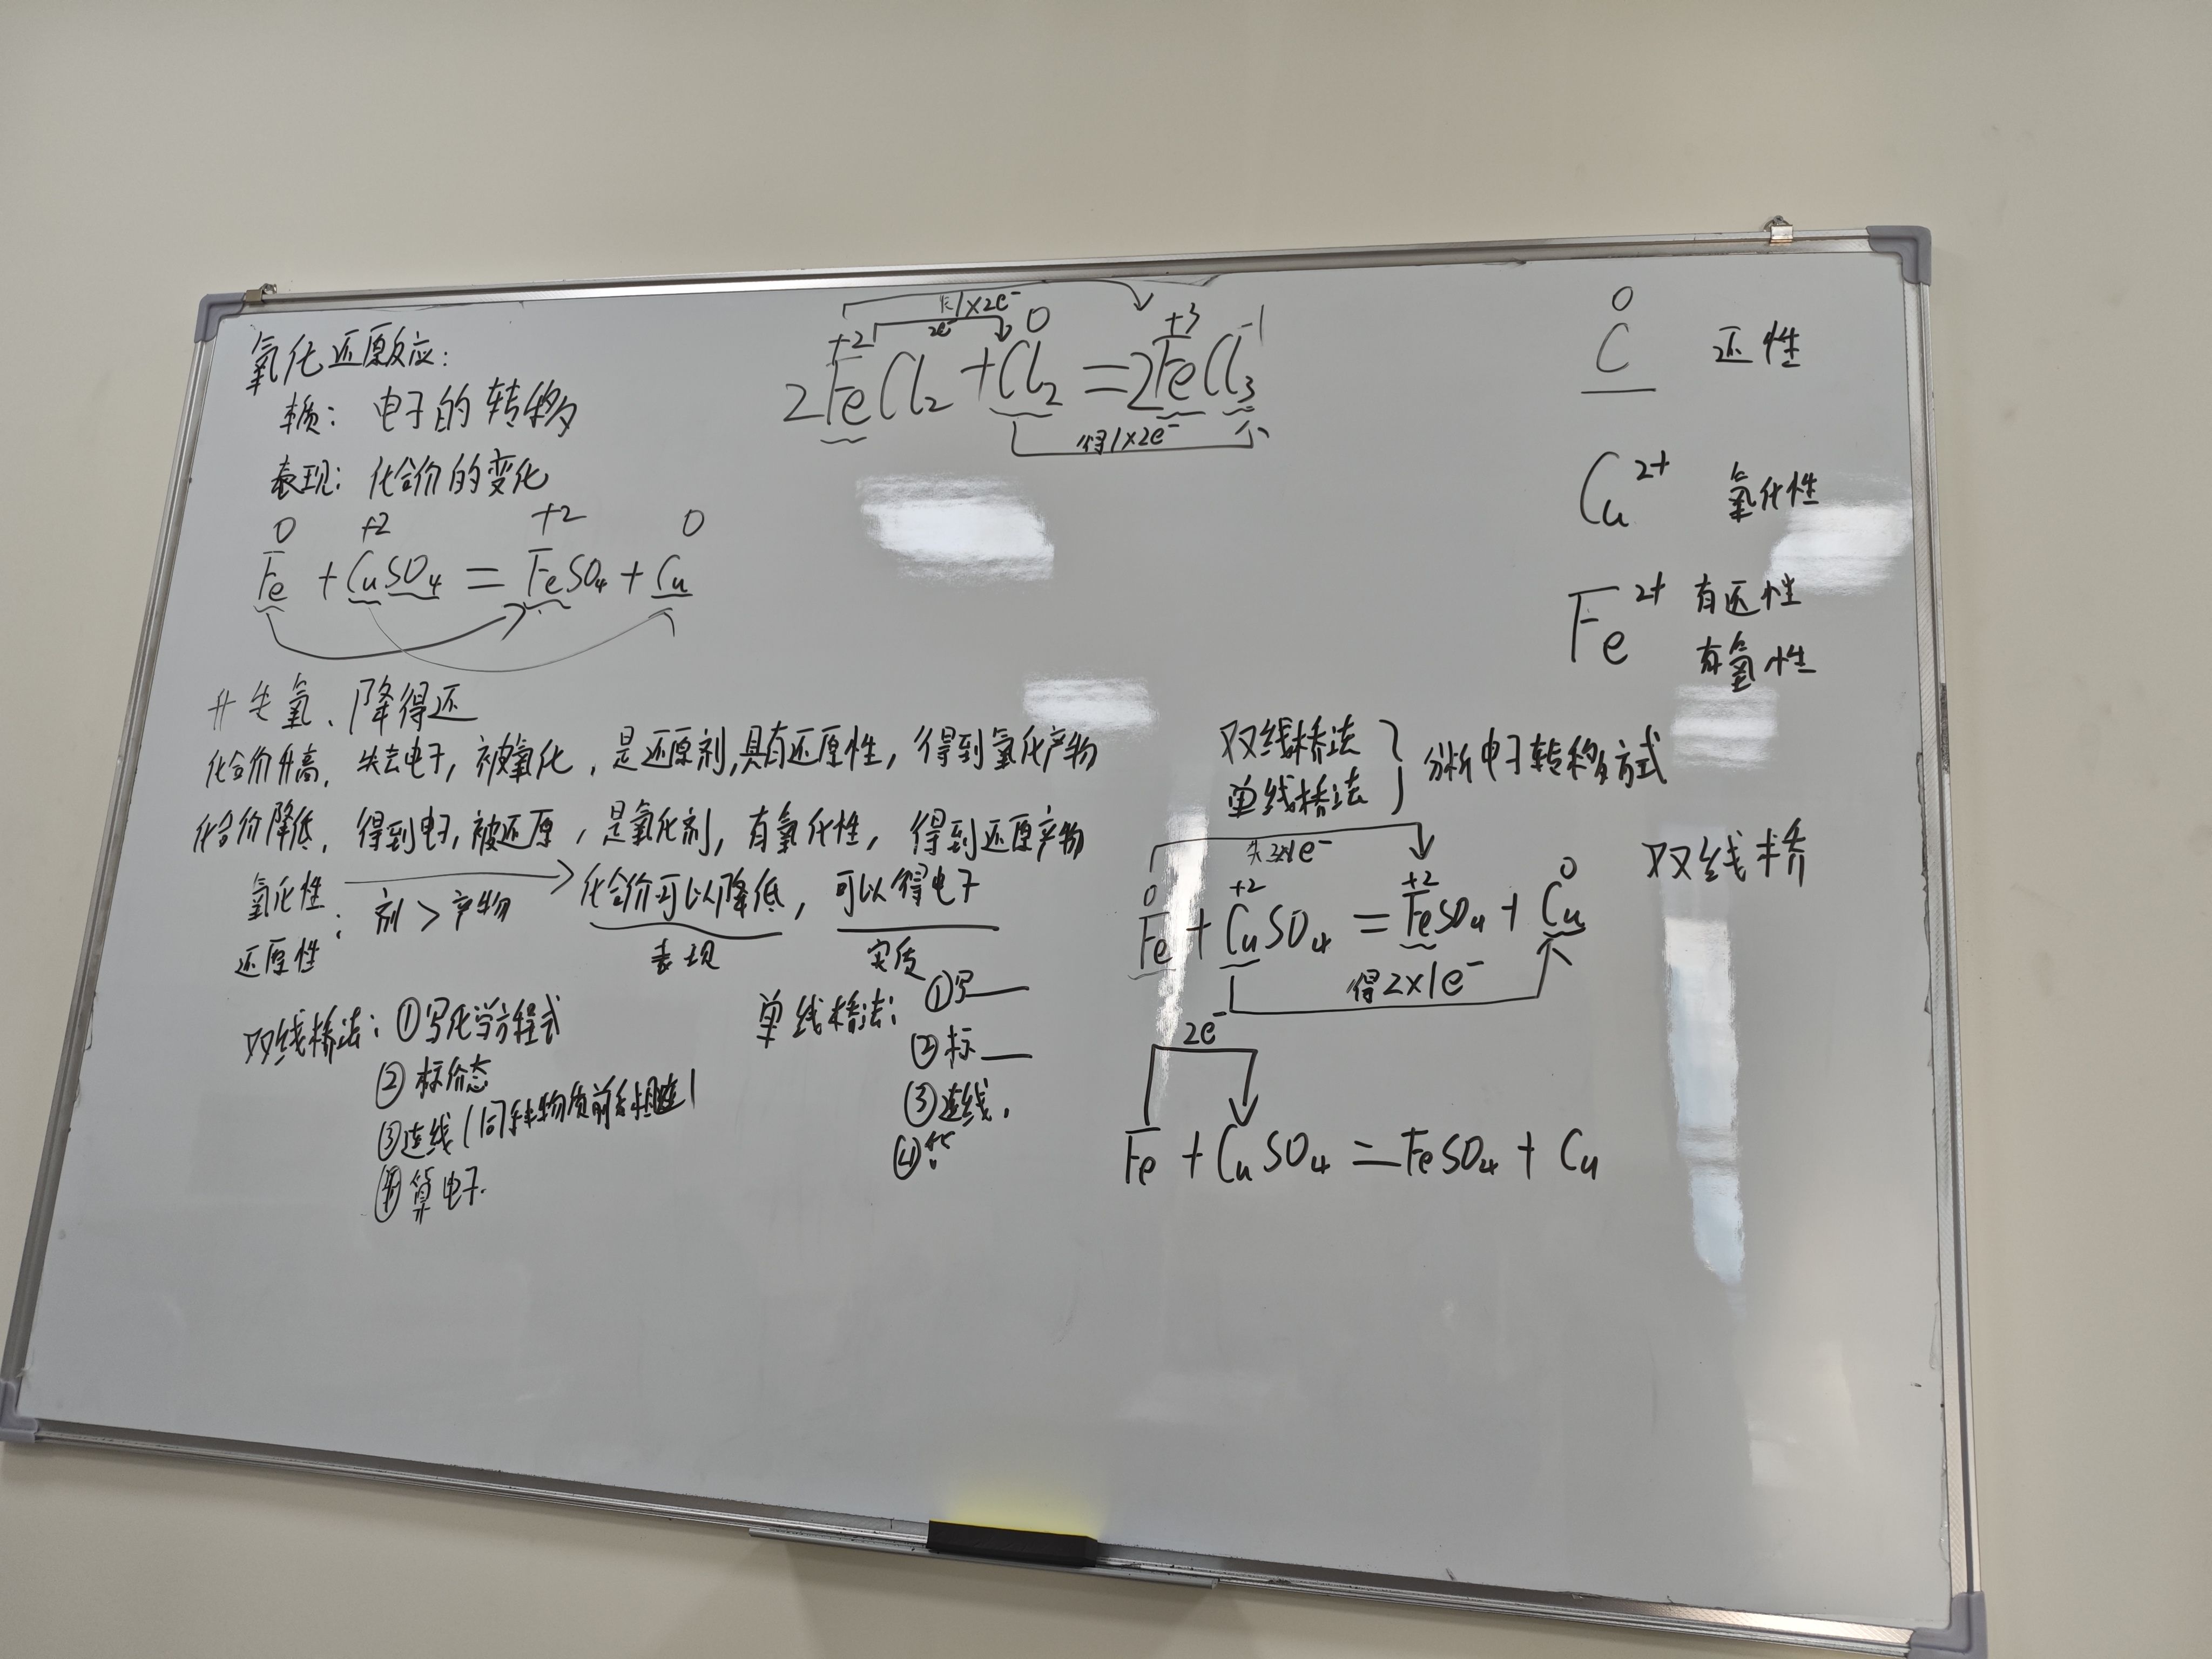 氧化还原反应:
本质: 电子的转移
表现: 化合价的变化
0 +2 +2 0
Fe + CuSO₄ = FeSO₄ + Cu
升失氧、降得还
化合价升高, 失去电子, 被氧化, 是还原剂, 具有还原性, 得到氧化产物
化合价降低, 得到电子, 被还原, 是氧化剂, 有氧化性, 得到还原产物
氧化性
还原性 : 剂 > 产物
化合价可以降低, 可以得电子
表现 实质
双线桥法: ①写化学方程式
②标价态
③连线(同种物质前后相连)
④算电子.
单线桥法: ①写
②标
③连线.
④
失1×2e⁻
2e⁻
+2 0 +3 -1
2FeCl₂ + Cl₂ = 2FeCl₃
得1×2e⁻
0
C 还性
Cu²⁺ 氧化性
Fe²⁺ 有还性
有氧性
双线桥法
单线桥法 } 分析电子转移方式
双线桥
失 e⁻
0 +2 +2 0
Fe + CuSO₄ = FeSO₄ + Cu
得2×1e⁻
2e⁻
Fe + CuSO₄ = FeSO₄ + Cu